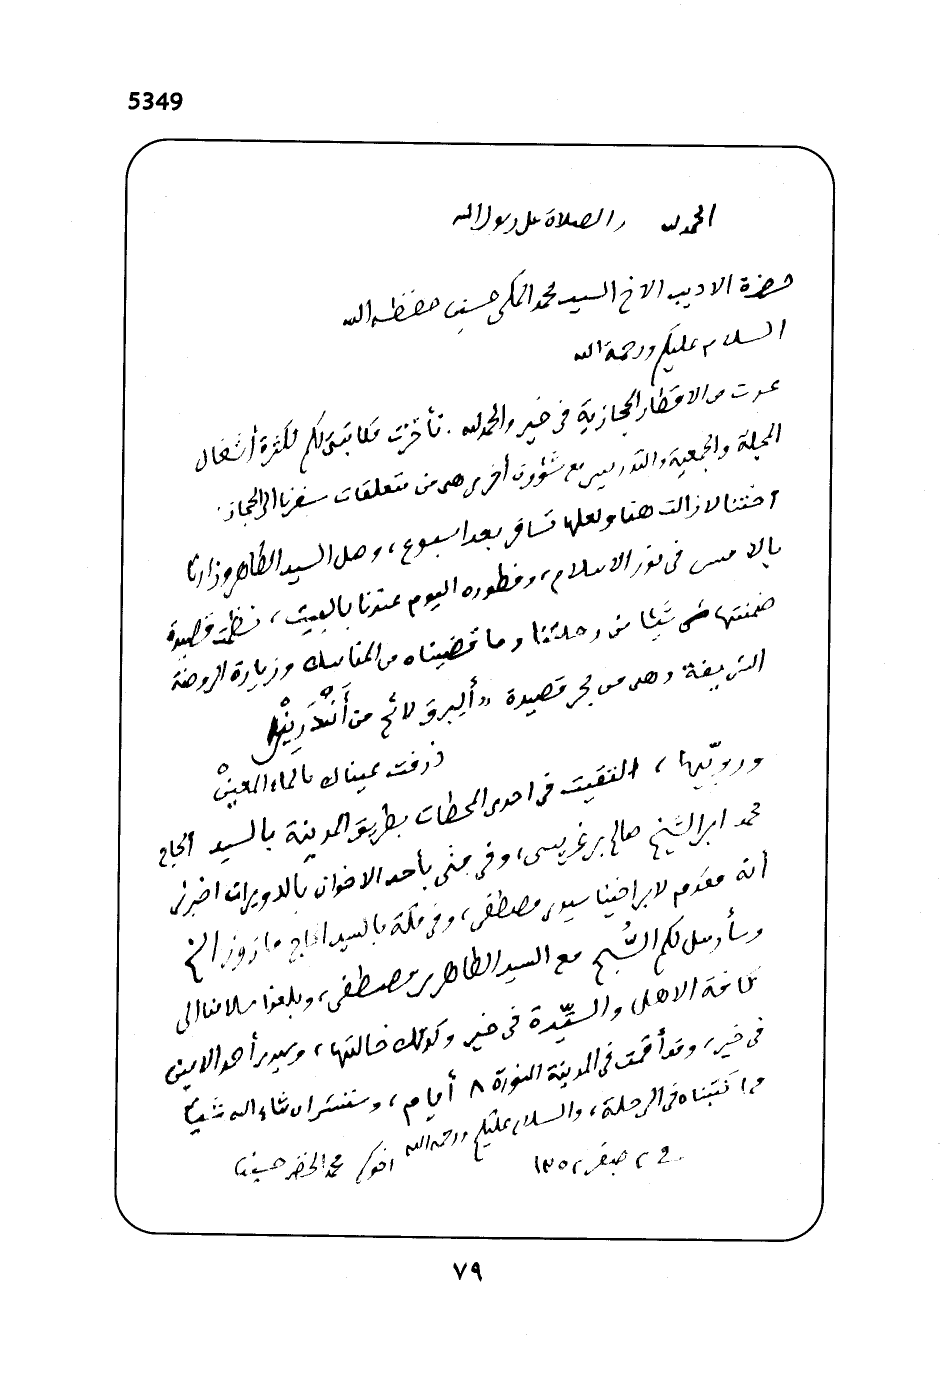 5349
الحمد لله والصلاة على رسول الله
حضرة الاديب الاخ السيد محمد المكي حسين حفظه الله
السلام عليكم ورحمة الله
عدت من الاقطار الحجازية في خير والحمد لله. تأخرت مكاتبتي لكم لكثرة أشغال
المجلة والجمعية والتدريس مع شؤون أخرى هي من متعلقات سفرنا الى الحجاز.
أختنا لا زالت هنا ولعلها تسافر بعد اسبوع، وصل السيد الطاهر وزارنا
بالامس في نور الاسلام، وفطوره اليوم عندنا بالبيت، نظمت قصيدة
ضمنتها شيئا من رحلتنا وما قضيناه من المناسك وزيارة الروضة
الشريفة وهي من بحر قصيدة «ألبرق لائح من أندرين
ذرفت عيناك بالماء المعين
ورويّها، التقيت في احدى المحطات بطريق المدينة بالسيد الحاج
محمد ابن الشيخ صالح بن غربيسى، وفي منى بأحد الاخوان بالدويرات اخبرني
أنه مقدم لابن اخينا سيدي مصطفى، وفي مكة بالسيد الحاج مازوز الخ
وسأرسل لكم السُّبح مع السيد الطاهر بن مصطفى، وبلغوا سلامنا الى
كافة الاهل والسيّدة في خير وكذلك خالتها، وسيدي أحمد الامين
في خير، وقد أقمت في المدينة المنورة ٨ أيام، وسننشر ان شاء الله شيئا
مما كتبناه في الرحلة، والسلام عليكم ورحمة الله اخوكم محمد الخضر حسين
في ٢ صفر ١٣٥٢
٧٩